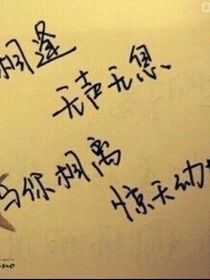 相逢
无声无息
与你相离
惊天动
no